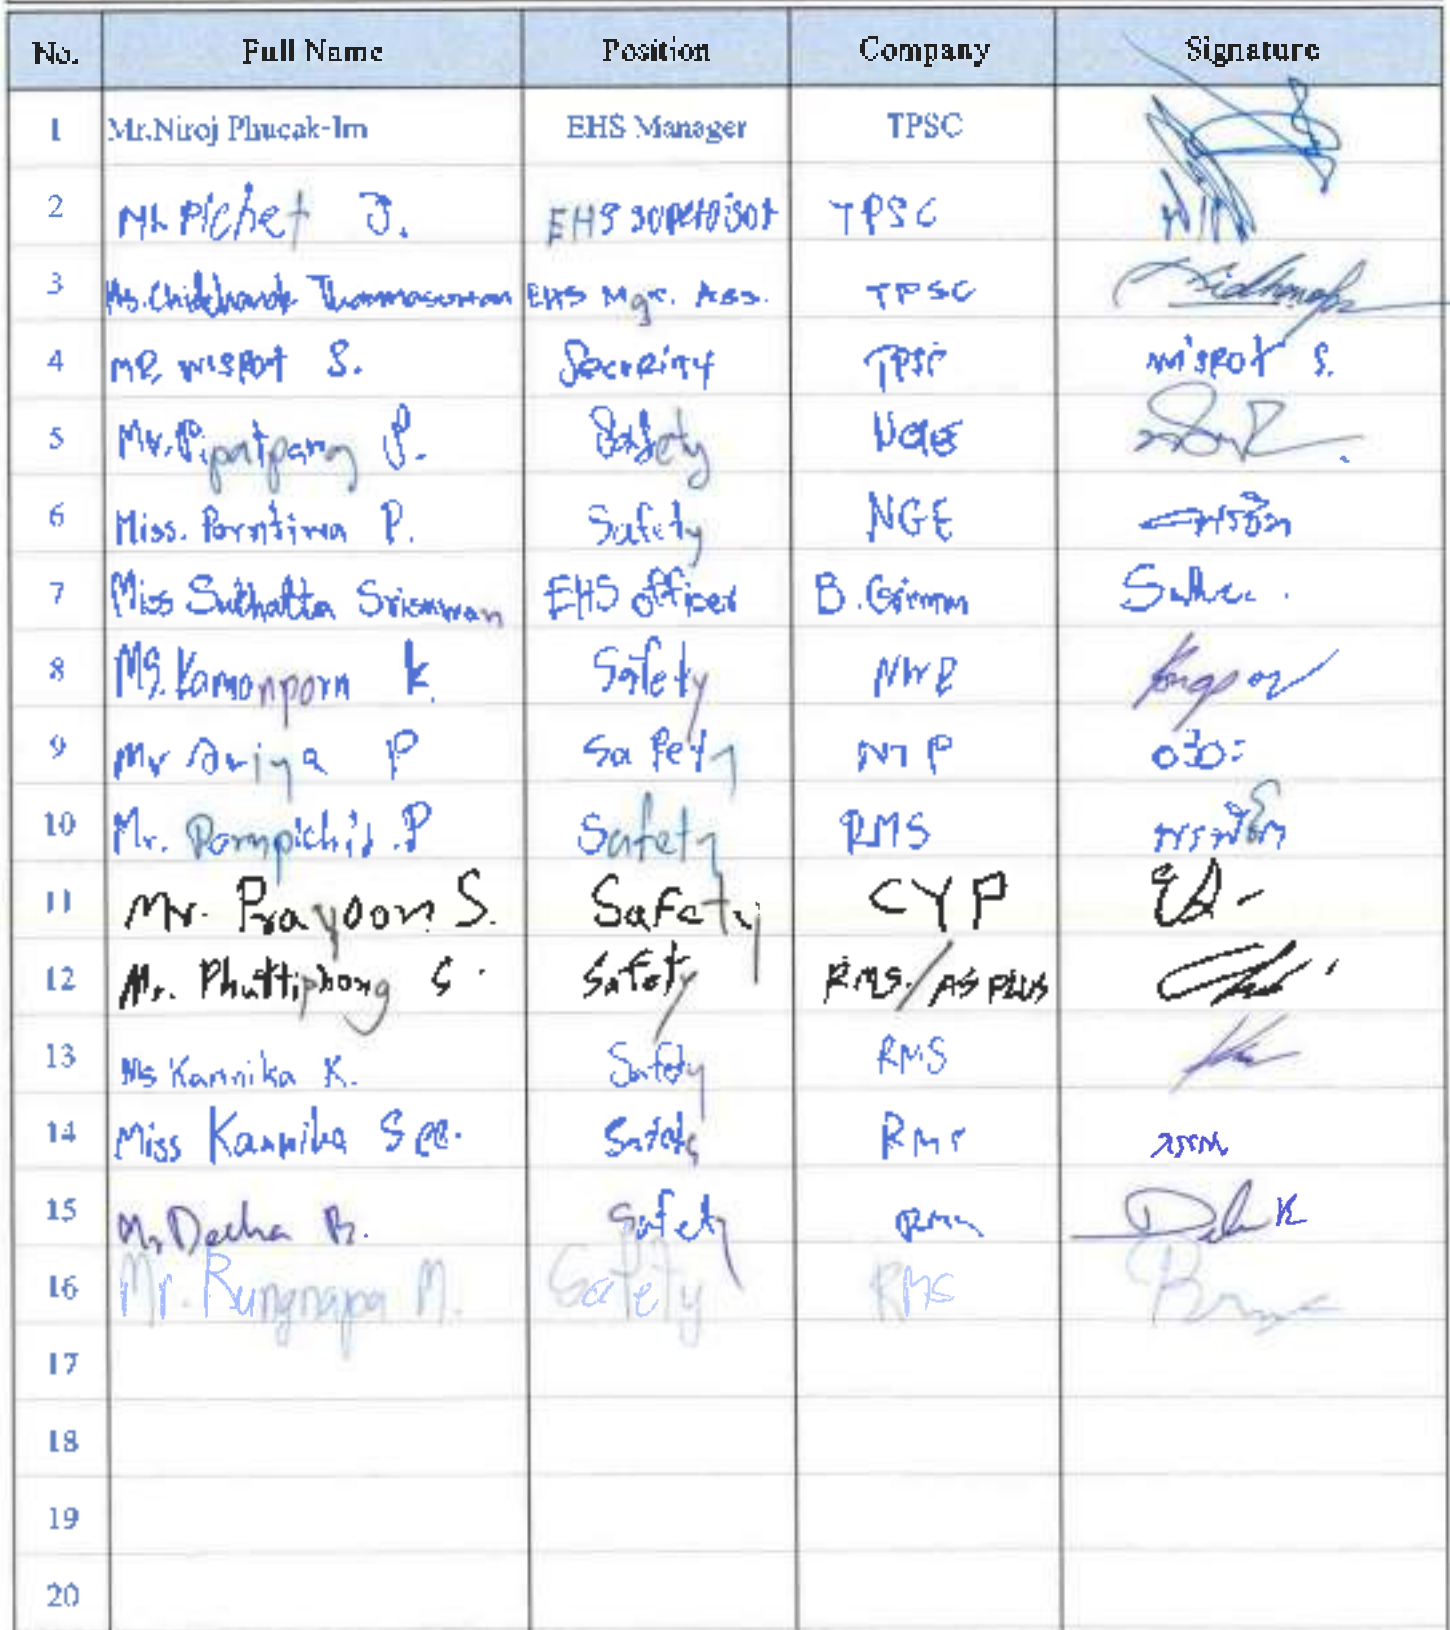 No. Full Name Position Company Signature
1 Mr.Niroj Phucak-Im EHS Manager TPSC
2 Mr. Pichet J. EHS supervisor TPSC
3 Ms. EHS Mgr. Ass. TPSC
4 MR. wisrot S. Security TPSC wisrot S.
5 Mr. Pipatpang S. Safety NGE
6 Miss. Porntiwa P. Safety NGE
7 Miss Suthatta Srisuwan EHS officer B.Grimm
8 MS. Kamonporn K. Safety NWR
9 Mr Ariya P Safety NTP
10 Mr. Pornpichit .P Safety RMS
11 Mr. Prayoon S. Safety CYP
12 Mr. Phuttiphong S. Safety RMS/AS PLUS
13 Ms Kannika K. Safety RMS
14 Miss Kannika See. Safety RMS
15 Mr Decha B. Safety RMS
16 Mr. Rungnapa M. Safety RMS
17
18
19
20